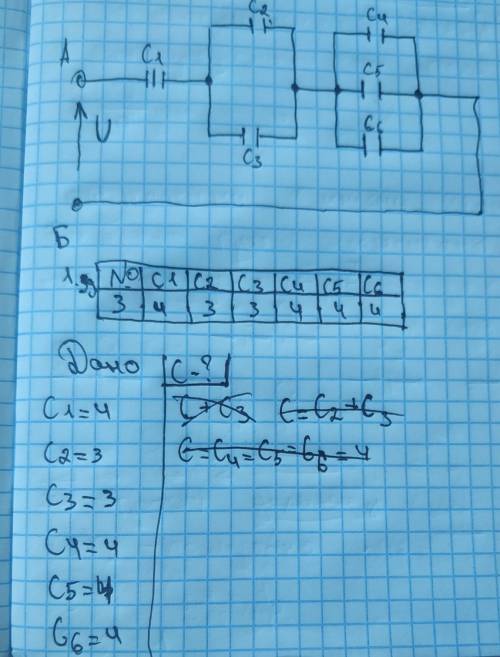 C2
C4
A
C1
C5
U
C3
C6
Б
1.
№ C1 C2 C3 C4 C5 C6
3 4 3 3 4 4 4
Дано C-?
C1=4 C+C3 C=C2+C3
C2=3 C=C4=C5=C6=4
C3=3
C4=4
C5=4
C6=4